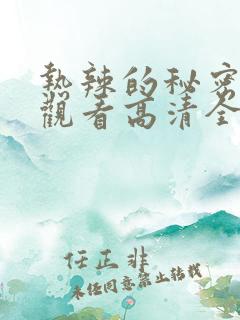 热辣的秘密
觀看高清全
任正非
未经同意禁止转载